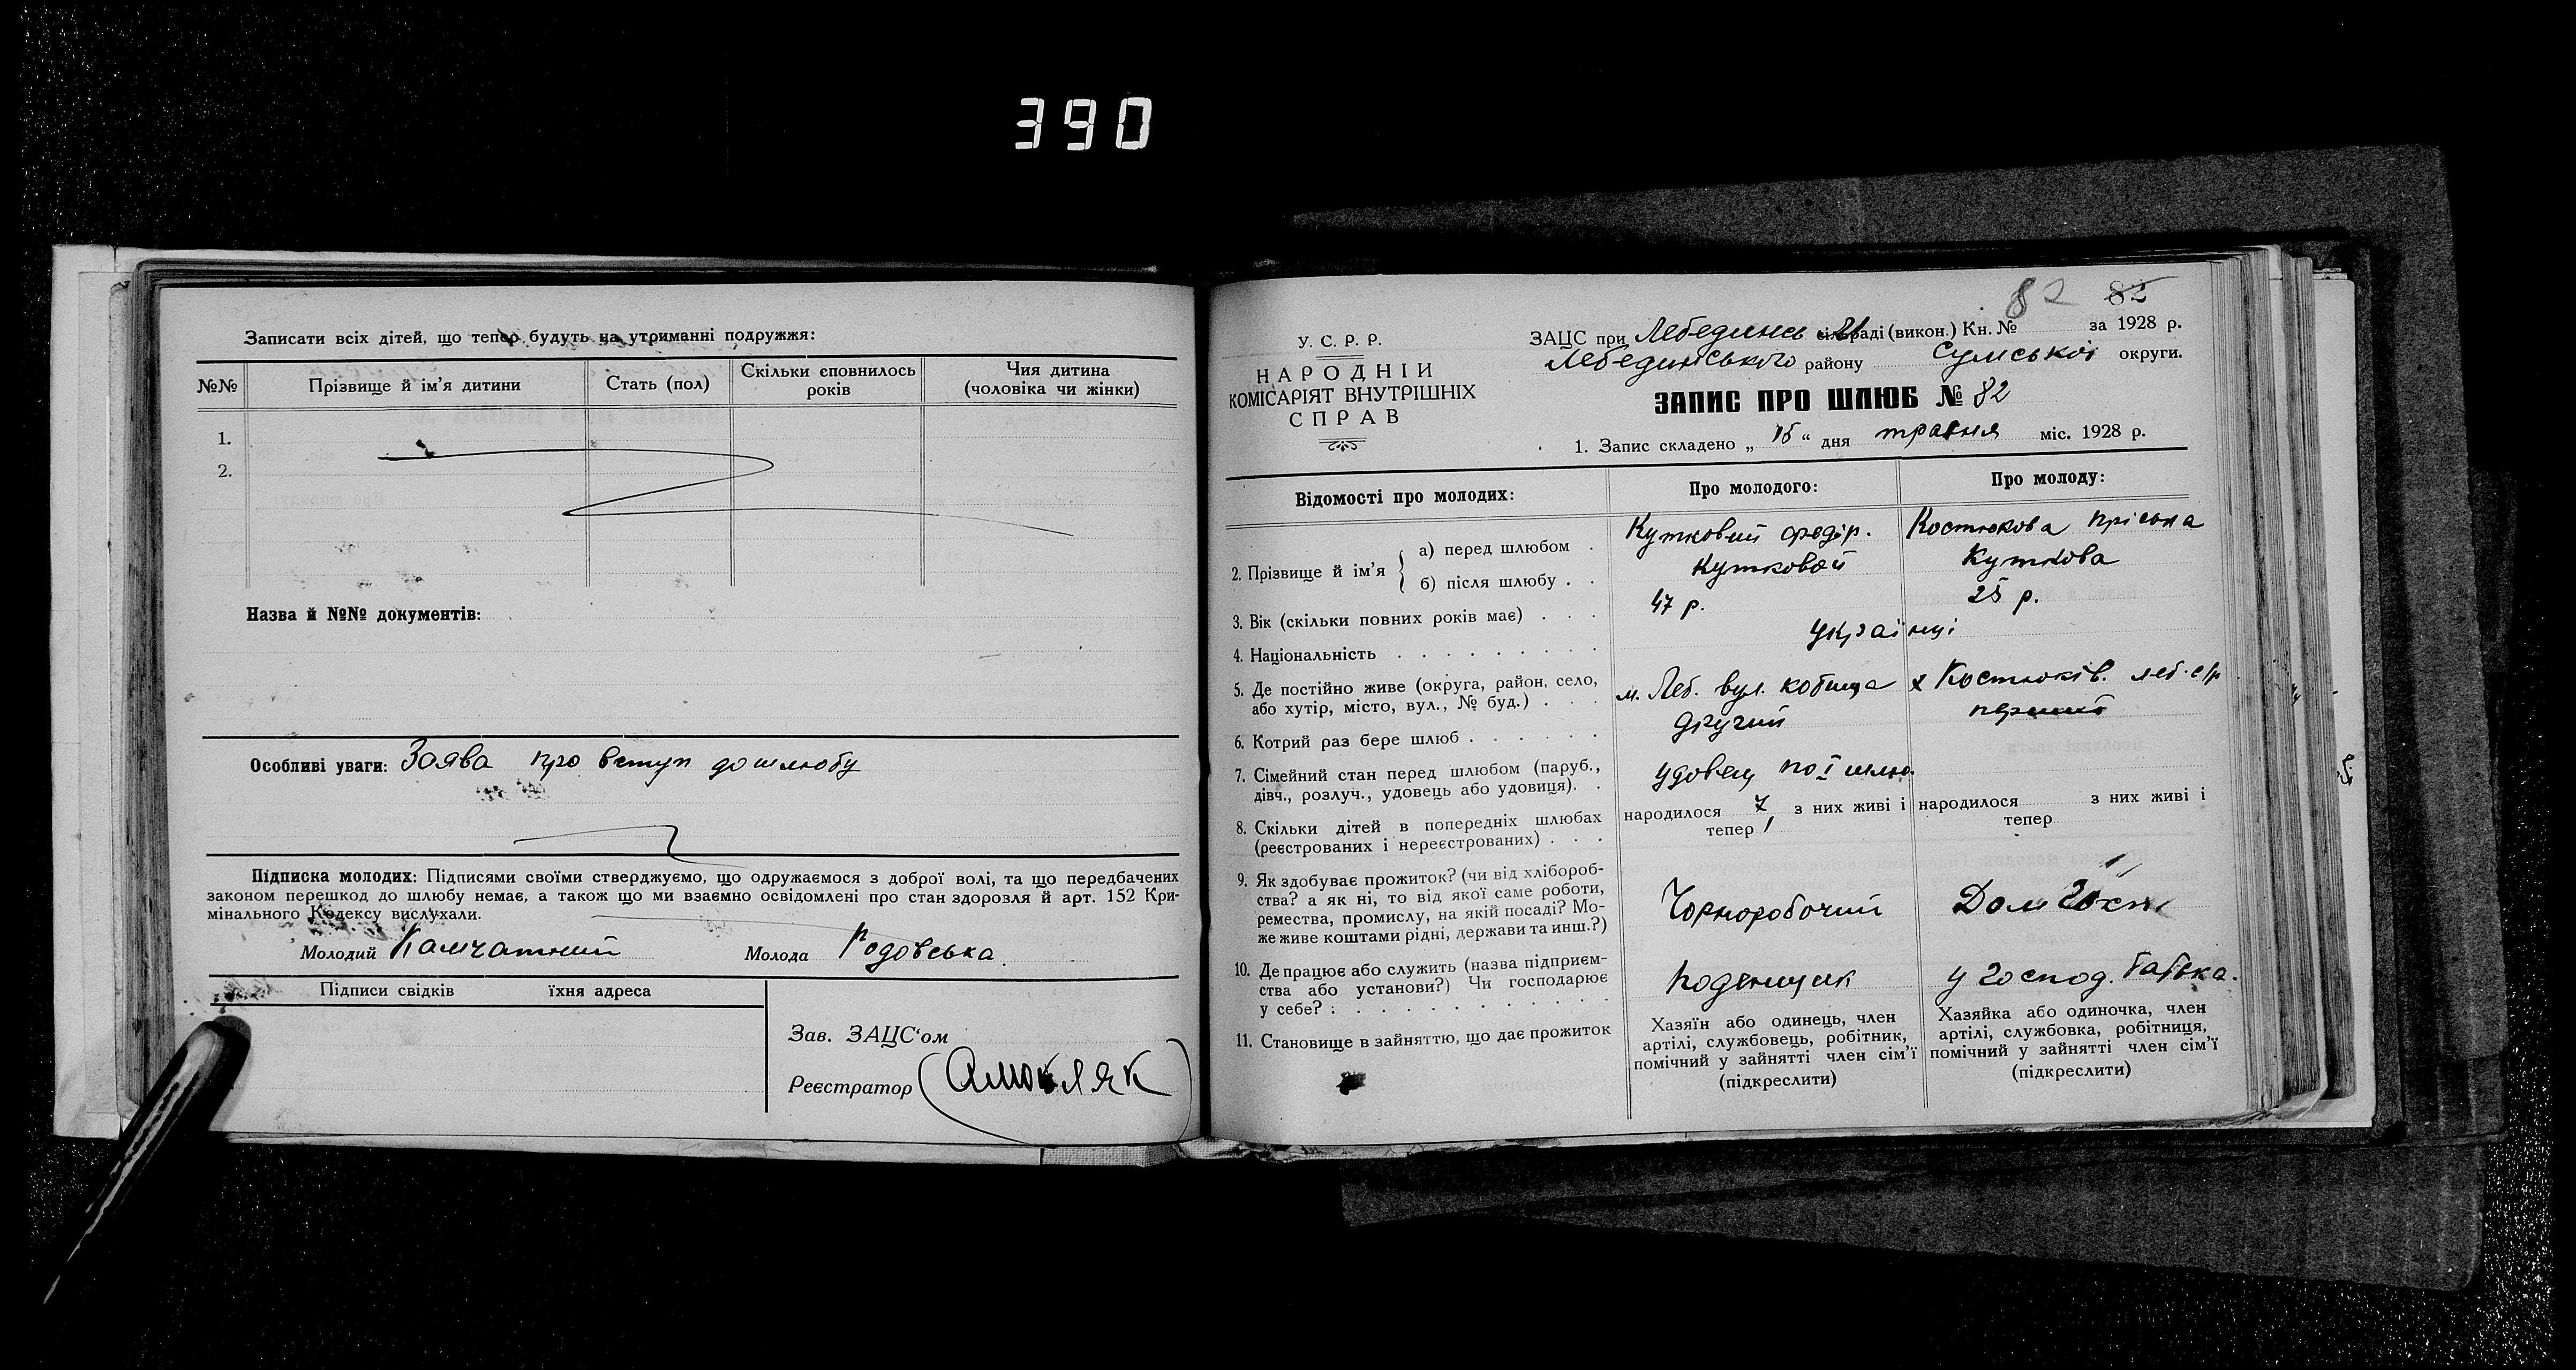 390
Записати всіх дітей, що тепер будуть на утриманні подружжя:
№№ Прізвище й ім'я дитини Стать (пол) Скільки єповнилось років Чия дитина (чоловіка чи жінки)
1.
2.
Назва й №№ документів:
Особливі уваги: Заява про вступ до шлюбу
Підписка молодих: Підписями своїми стверджуємо, що одружаємося з доброї волі, та що передбачених
законом перешкод до шлюбу немає, а також що ми взаємно освідомлені про стан здоровля й арт. 152 Кри-
мінального Кодексу вислухали.
Молодий Камчатний Молода Родовська
Підписи свідків їхня адреса
Зав. ЗАЦС‘ом
Реєстратор
82 82
У. С. Р. Р.
НАРОДНІЙ
КОМІСАРІЯТ ВНУТРІШНІХ
СПРАВ
ЗАЦС при Лебединсь сільраді (викон.) Кн. № за 1928 р.
Лебединського району Сумської округи.
ЗАПИС ПРО ШЛЮБ № 82
1. Запис складено „ 15 “ дня травня міс. 1928 р.
Відомості про молодих: Про молодого: Про молоду:
2. Прізвище й ім'я
а) перед шлюбом . Кутковий Федір. Костюкова Пріська
б) після шлюбу . . Кутковой Куткова
3. Вік (скільки повних років має) . . . 47 р. 25 р.
4. Національність . . . . . . . . . українці
5. Де постійно живе (округа, район, село,
або хутір, місто, вул., № буд.) . . . м. Леб. вул. кобища х Костюків. леб. с/р
6. Котрий раз бере шлюб . . . . . . другий перший
7. Сімейний стан перед шлюбом (паруб.,
дівч., розлуч., удовець або удовиця). . удовец по I шлю.
8. Скільки дітей в попередніх шлюбах
(реєстрованих і нереєстрованих) . . .
народилося 7 з них живі і
тепер
народилося з них живі і
тепер
9. Як здобуває прожиток? (чи від хлібороб-
ства? а як ні, то від якої саме роботи,
ремества, промислу, на якій посаді? Мо-
же живе коштами рідні, держави та инш.?)
Чорноробочий
10. Де працює або служить (назва підприєм-
ства або установи?) Чи господарює
у себе? : . . . . . . . . . .
поденщик у господ. батька.
11. Становище в зайняттю, що дає прожиток
Хазяїн або одинець, член
артілі, службовець, робітник,
помічний у зайнятті член сім'ї
(підкреслити)
Хазяйка або одиночка, член
артілі, службовка, робітниця,
помічний у зайнятті член сім'ї
(підкреслити)